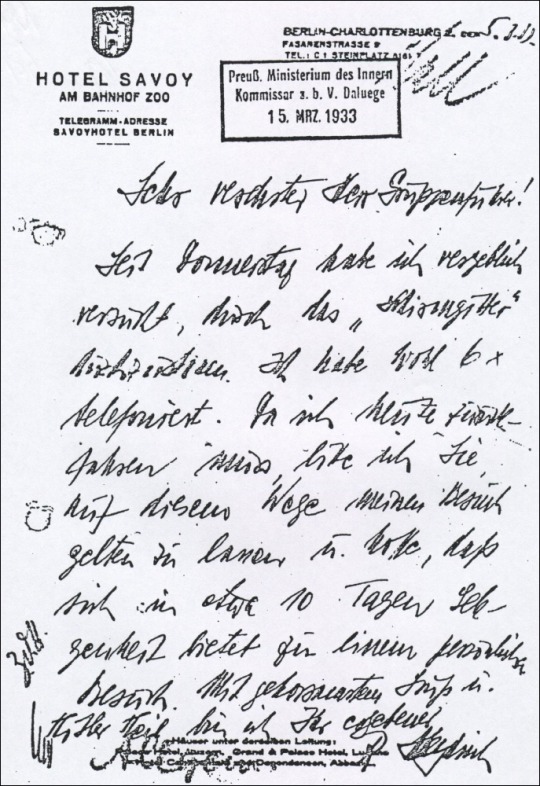 BERLIN-CHARLOTTENBURG 2, DEN 5.3.33.
FASANENSTRASSE 9
TEL.: C 1 STEINPLATZ
HOTEL SAVOY
AM BAHNHOF ZOO
TELEGRAMM-ADRESSE
SAVOYHOTEL BERLIN
Preuß. Ministerium des Innern
Kommissar z. b. V. Daluege
15. MRZ. 1933
Sehr verehrter Herr Gruppenführer!
Seit Donnerstag habe ich vergeblich
versucht, durch das „Schirmgitter“
durchzudringen. Ich habe wohl 6 x
telefoniert. Da ich heute zurück-
fahren muss, bitte ich Sie,
auf diesem Wege meinen Besuch
gelten zu lassen u. hoffe, daß
sich in etwa 10 Tagen Gele-
genheit bietet zu einem persönlichen
Besuch. Mit gehorsamstem Gruß u.
Hitler Heil bin ich Ihr ergebener
R. Heydrich
Häuser unter derselben Leitung:
Palace Hotel, Luzern, Grand & Palace Hotel, Lugano